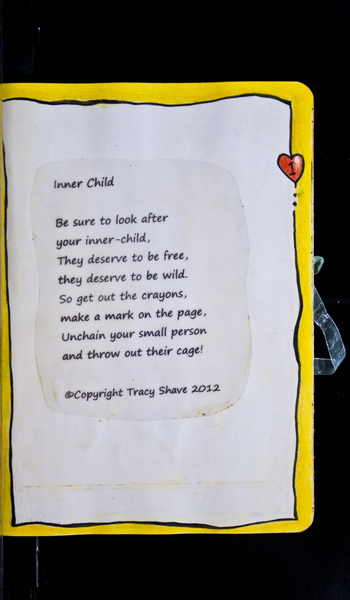 1
Inner Child
Be sure to look after
your inner-child,
They deserve to be free,
they deserve to be wild.
So get out the crayons,
make a mark on the page,
Unchain your small person
and throw out their cage!
©Copyright Tracy Shave 2012